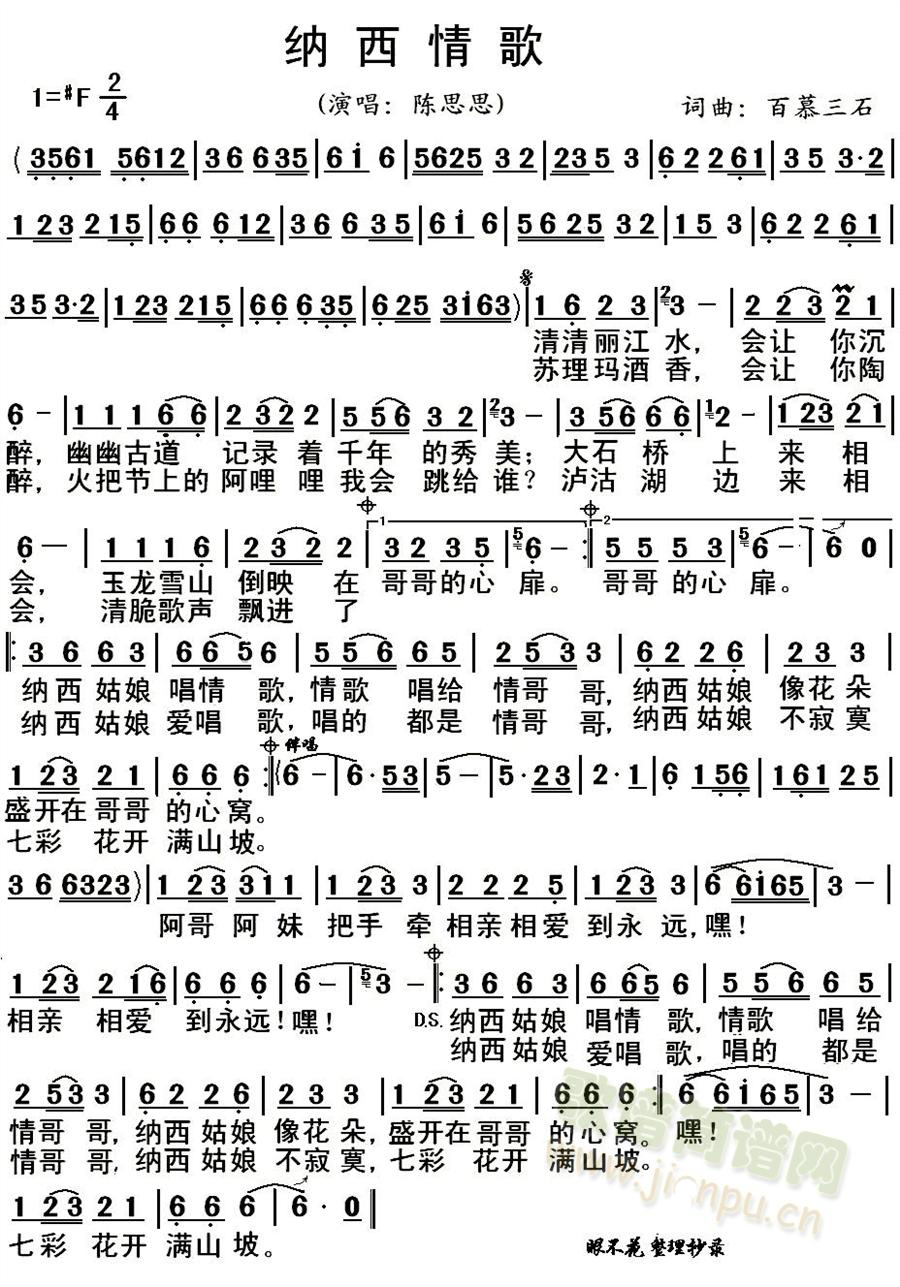 纳西情歌
1=#F 2/4 (演唱：陈思思) 词曲：百慕三石
( 3561 5612 | 36 635 | 6i 6 | 5625 32 | 235 3 | 62 261 | 35 3·2 |
123 215 | 66 612 | 36 635 | 6i 6 | 5625 32 | 15 3 | 62 261 |
35 3·2 | 123 215 | 66 635 | 625 3i63 ) | 1 6 2 3 | 3 － | 2 2 3 2 1 |
清清丽江水，会让你沉
苏理玛酒香，会让你陶
6 － | 1 1 1 6 6 | 2 3 2 2 | 5 5 6 3 2 | 3 － | 3 5 6 6 6 | 2 － | 1 2 3 2 1 |
醉，幽幽古道 记录着千年的秀美；大石桥上来相
醉，火把节上的阿哩哩我会跳给谁？泸沽湖边来相
6 － | 1 1 1 6 | 2 3 2 2 | 3 2 3 5 | 6 － :| 5 5 5 3 | 6 － | 6 0 |
会，玉龙雪山倒映在哥哥的心扉。哥哥的心扉。
会，清脆歌声飘进了
|: 3 6 6 3 | 6 6 5 6 | 5 5 6 6 5 | 2 5 3 3 | 6 2 2 6 | 2 3 3 |
纳西姑娘唱情歌，情歌唱给情哥哥，纳西姑娘像花朵
纳西姑娘爱唱歌，唱的都是情哥哥，纳西姑娘不寂寞
伴唱
1 2 3 2 1 | 6 6 6 :| ( 6 － | 6·53 | 5 － | 5·23 | 2·1 | 6 156 | 161 25 |
盛开在哥哥的心窝。
七彩花开满山坡。
36 6323 ) | 1 2 3 3 1 1 | 1 2 3 3 | 2 2 2 5 | 1 2 3 3 | 6 6i65 | 3 － |
阿哥阿妹把手牵相亲相爱到永远，嘿！
1 2 3 2 1 6 | 6 6 6 | 6 － | 3 － :| 3 6 6 3 | 6 6 5 6 | 5 5 6 6 5 |
相亲相爱到永远！嘿！ D.S. 纳西姑娘唱情歌，情歌唱给
纳西姑娘爱唱歌，唱的都是
2 5 3 3 | 6 2 2 6 | 2 3 3 | 1 2 3 2 1 | 6 6 6 :| 6 6i65 | 3 － |
情哥哥，纳西姑娘像花朵，盛开在哥哥的心窝。嘿！
情哥哥，纳西姑娘不寂寞，七彩花开满山坡。
1 2 3 2 1 | 6 6 6 | 6· 0 ‖
七彩花开满山坡。
眼不花 整理抄录
歌谱简谱网
www.jianpu.cn